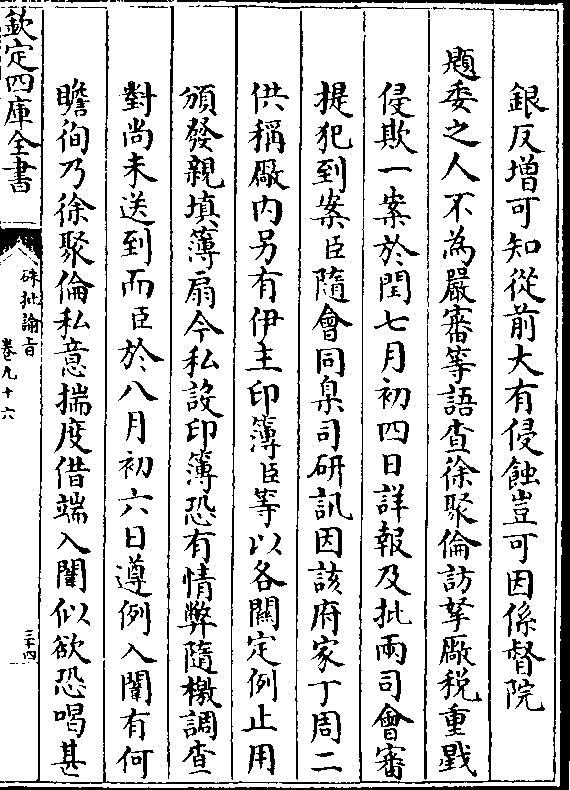 銀反增可知從前大有侵蝕豈可因係督院
題委之人不為嚴審等語查徐聚倫訪拏廠稅重戥
侵欺一案於閏七月初四日詳報及批兩司會審
提犯到案臣隨會同臬司研訊因該府家丁周二
供稱廠內另有伊主印簿臣等以各關定例止用
頒發親填簿扇今私設印簿恐有情弊隨檄調查
對尚未送到而臣於八月初六日遵例入闈有何
瞻徇乃徐聚倫私意揣度借端入闈似欲恐喝甚
欽定四庫全書
硃批諭旨
卷九十六
三十四